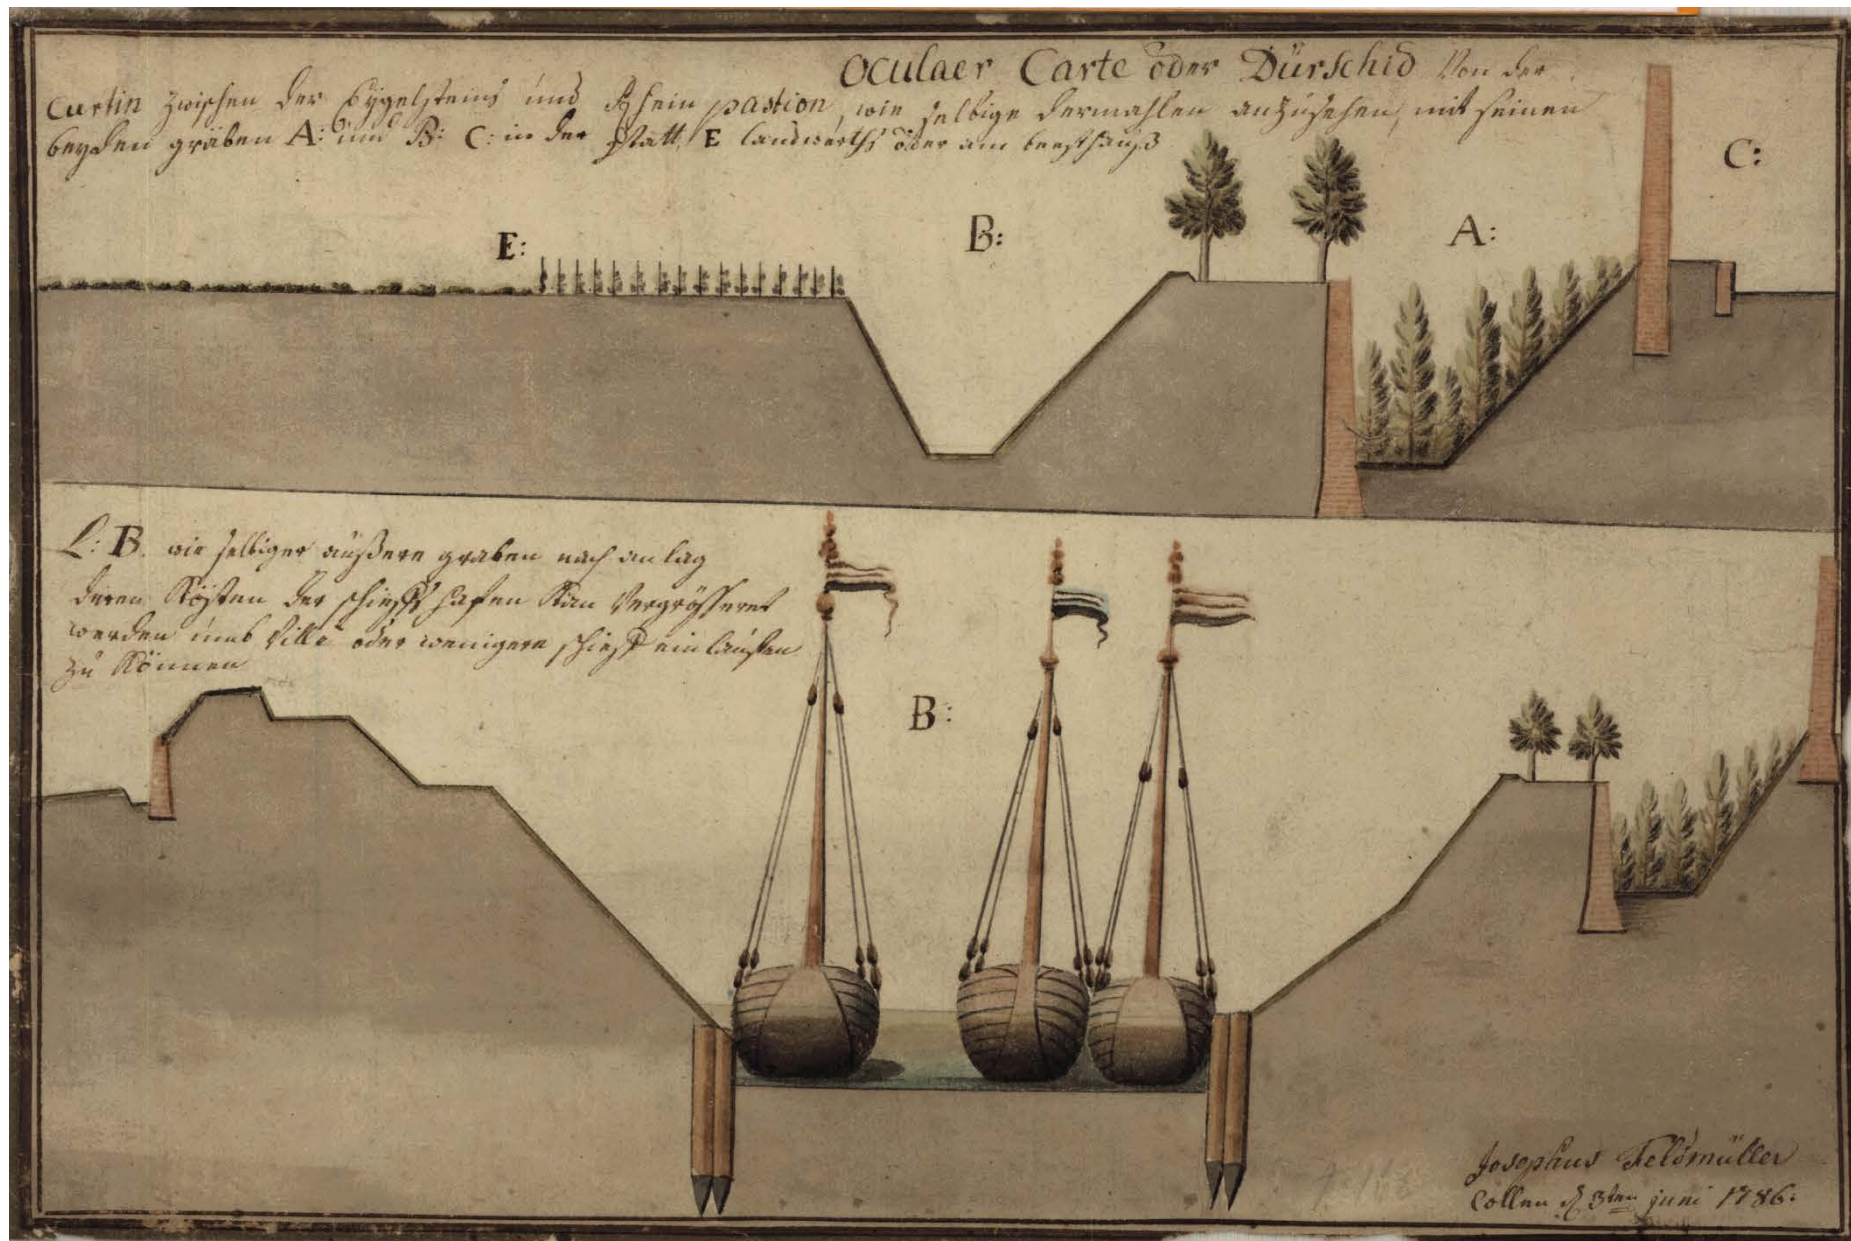 Oculaer Carte oder Dürschid Von der
Curtin zwischen der Eygelsteins und Rhein pastion, wie selbige dermahlen anzusehen, mit seinen
beyden gräben A: und B: C: in der statt, E landwerths oder am
C:
E:
B:
A:
L: B. wie selbiger äußere graben nach anlag
deren Kösten der schieff hafen Kan Vergrösseret
werden umb Ville oder wenigere schieff einlaufen
zu Können
B:
Josephus Feldmüller
Collen d 3ten juni 1786.